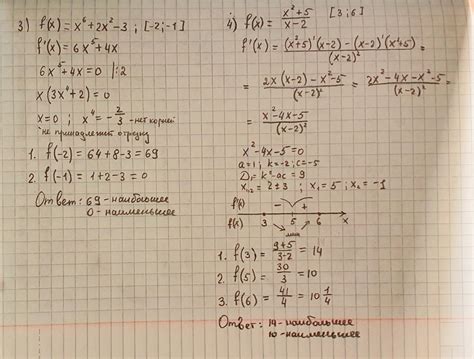 3) f(x) = x⁶ + 2x² - 3 ; [-2; -1]
f'(x) = 6x⁵ + 4x
6x⁵ + 4x = 0 |:2
x(3x⁴ + 2) = 0
x = 0 ; x⁴ = -2/3 - нет корней
не принадлежит отрезку
1. f(-2) = 64 + 8 - 3 = 69
2. f(-1) = 1 + 2 - 3 = 0
Ответ: 69 - наибольшее
0 - наименьшее
4) f(x) = (x² + 5)/(x - 2) [3; 6]
f'(x) = ((x² + 5)'(x - 2) - (x - 2)'(x² + 5))/(x - 2)² =
= (2x(x - 2) - x² - 5)/(x - 2)² = (2x² - 4x - x² - 5)/(x - 2)² =
= (x² - 4x - 5)/(x - 2)²
x² - 4x - 5 = 0
a = 1; k = -2; c = -5
D₁ = k² - ac = 9
x₁,₂ = 2 ± 3 ; x₁ = 5 ; x₂ = -1
f'(x) - +
f(x) 3 5 6 x
min
1. f(3) = (9 + 5)/(3 - 2) = 14
2. f(5) = 30/3 = 10
3. f(6) = 41/4 = 10 1/4
Ответ: 14 - наибольшее
10 - наименьшее